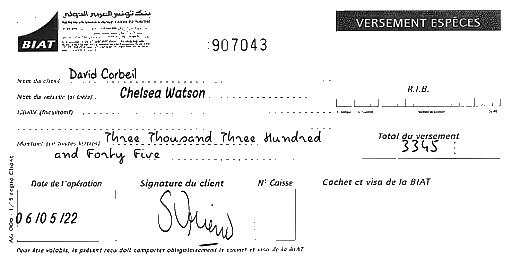 بنك تونس العربي الدولي
BIAT
VERSEMENT ESPÈCES
907043
Nom du client David Corbeil
Nom du remettant (si tiers) Chelsea Watson
R.I.B.
Libellé (facultatif)
Montant (en toutes lettres) Three Thousand Three Hundred
and Forty Five
Total du versement
3345
Date de l'opération
Signature du client
N° Caisse
Cachet et visa de la BIAT
06/05/22
Pour être valable, le présent reçu doit comporter obligatoirement le cachet et visa de la BIAT